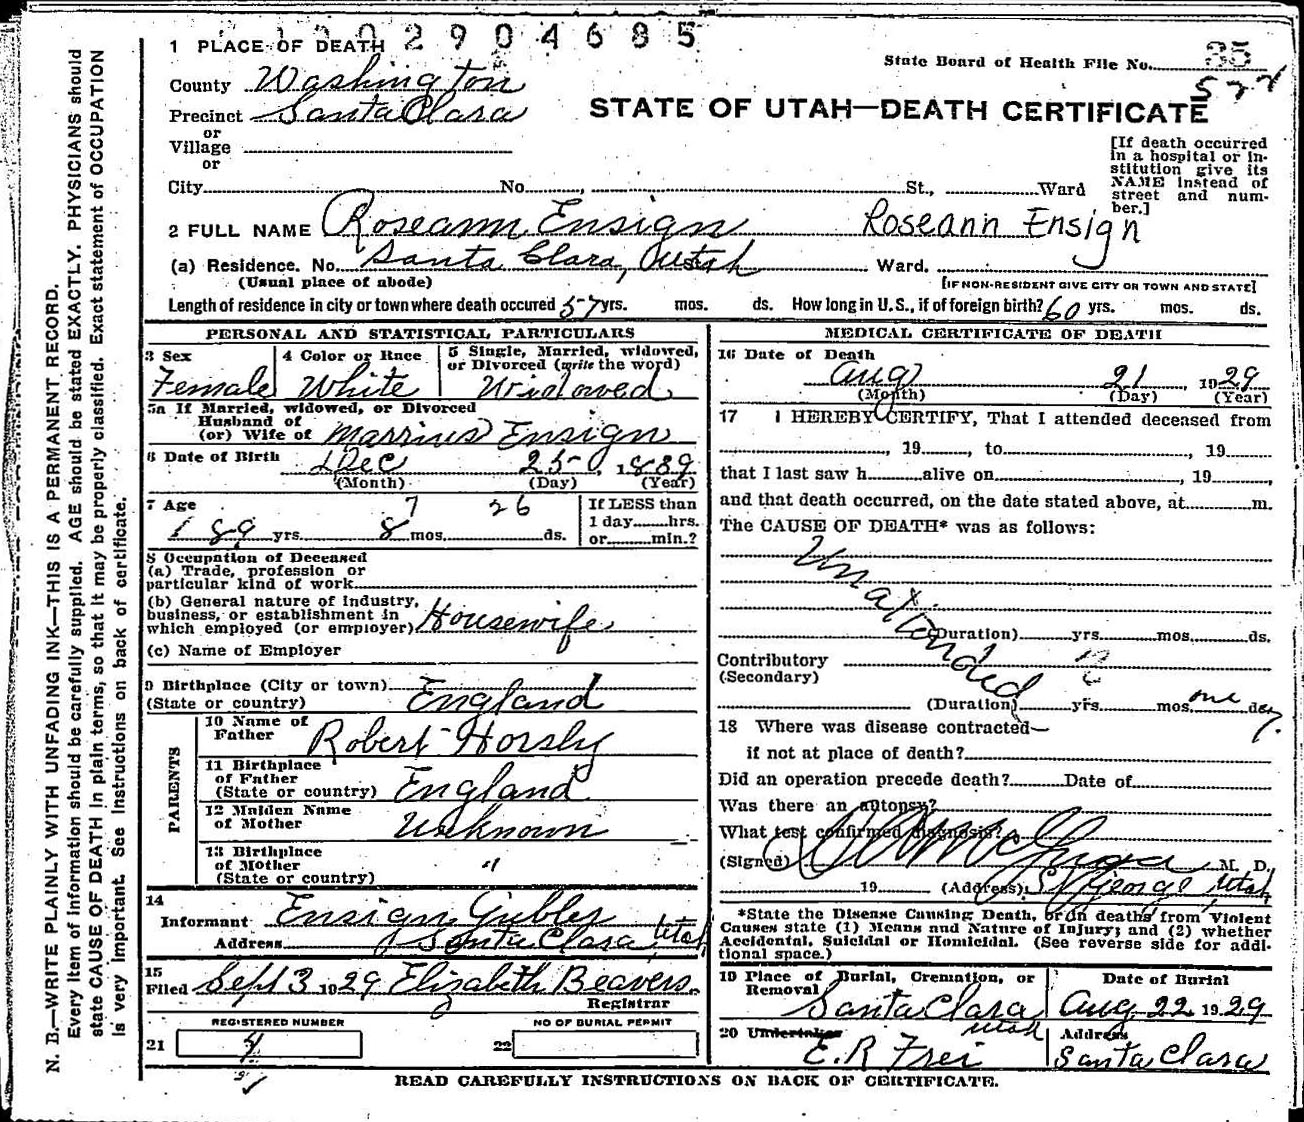 1 0 0 2 9 0 4 6 8 5
1 PLACE OF DEATH
State Board of Health File No. 35
577
County Washington
STATE OF UTAH—DEATH CERTIFICATE
Precinct Santa Clara
or
Village
or
City No. , St., Ward
[If death occurred
in a hospital or in-
stitution give its
NAME instead of
street and num-
ber.]
2 FULL NAME Roseann Ensign Roseann Ensign
(a) Residence. No. Santa Clara, Utah Ward.
(Usual place of abode) [IF NON-RESIDENT GIVE CITY OR TOWN AND STATE]
Length of residence in city or town where death occured 57 yrs. mos. ds. How long in U.S., if of foreign birth? 60 yrs. mos. ds.
PERSONAL AND STATISTICAL PARTICULARS
3 Sex
Female
4 Color or Race
White
5 Single, Married, widowed,
or Divorced (write the word)
Widowed
5a If Married, widowed, or Divorced
Husband of
(or) Wife of Marrius Ensign
6 Date of Birth Dec 25 1889
(Month) (Day) (Year)
7 Age 7 26
189 yrs. 8 mos. ds.
If LESS than
1 day hrs.
or min.?
8 Occupation of Deceased
(a) Trade, profession or
particular kind of work
(b) General nature of Industry,
business, or establishment in
which employed (or employer) Housewife
(c) Name of Employer
9 Birthplace (City or town)
(State or country) England
PARENTS
10 Name of
Father Robert Horsly
11 Birthplace
of Father
(State or country) England
12 Maiden Name
of Mother Unknown
13 Birthplace
of Mother "
(State or country)
14
Informant Ensign Gubler
Address Santa Clara Utah
15
Filed Sept 3 1929 Elizabeth Beavers
Registrar
REGISTERED NUMBER NO OF BURIAL PERMIT
21 22
MEDICAL CERTIFICATE OF DEATH
16 Date of Death
Aug 21, 1929
(Month) (Day) (Year)
17 I HEREBY CERTIFY, That I attended deceased from
, 19 , to , 19 ,
that I last saw h alive on , 19 ,
and that death occurred, on the date stated above, at m.
The CAUSE OF DEATH* was as follows:
Unattended
(Duration) yrs. mos. ds.
Contributory
(Secondary)
(Duration) yrs. mos. one day.
18 Where was disease contracted—
if not at place of death?
Did an operation precede death? Date of
Was there an autopsy?
What test confirmed diagnosis?
(Signed) M. D.
19 (Address) St George Utah
*State the Disease Causing Death, or in deaths from Violent
Causes state (1) Means and Nature of Injury; and (2) whether
Accidental, Suicidal or Homicidal. (See reverse side for addi-
tional space.)
19 Place of Burial, Cremation, or
Removal
Santa Clara
Utah
Date of Burial
Aug 22 1929
20 Undertaker
E. R Frei
Address
Santa Clara
READ CAREFULLY INSTRUCTIONS ON BACK OF CERTIFICATE.
N. B.—WRITE PLAINLY WITH UNFADING INK—THIS IS A PERMANENT RECORD.
Every item of information should be carefully supplied. AGE should be stated EXACTLY. PHYSICIANS should
state CAUSE OF DEATH in plain terms, so that it may be properly classified. Exact statement of OCCUPATION
is very important. See instructions on back of certificate.